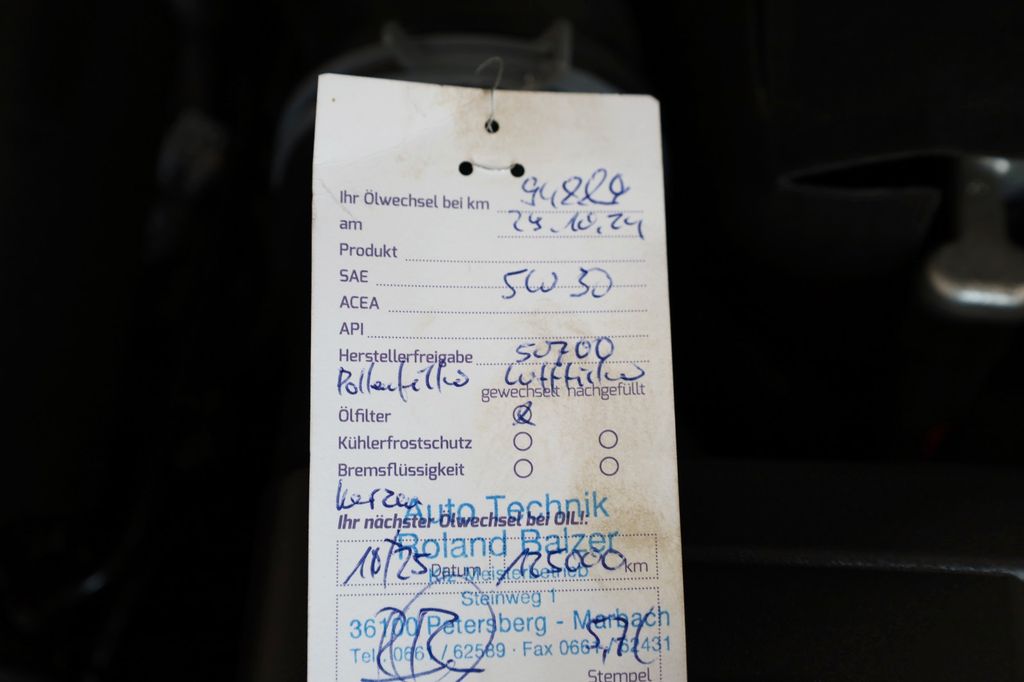 Ihr Ölwechsel bei km
am 24.10.24
Produkt
SAE 5W 30
ACEA
API
Herstellerfreigabe 50700
Pollenfilter Luftfilter
gewechselt nachgefüllt
Ölfilter
Kühlerfrostschutz
Bremsflüssigkeit
Kerzen
Auto Technik
Ihr nächster Ölwechsel bei OIL!:
Roland Balzer
10/25 Datum 125000 km
Kfz-Meisterbetrieb
Steinweg 1
36100 Petersberg - Marbach
Tel. 0661 / 62589 · Fax 0661 / 62431
Stempel